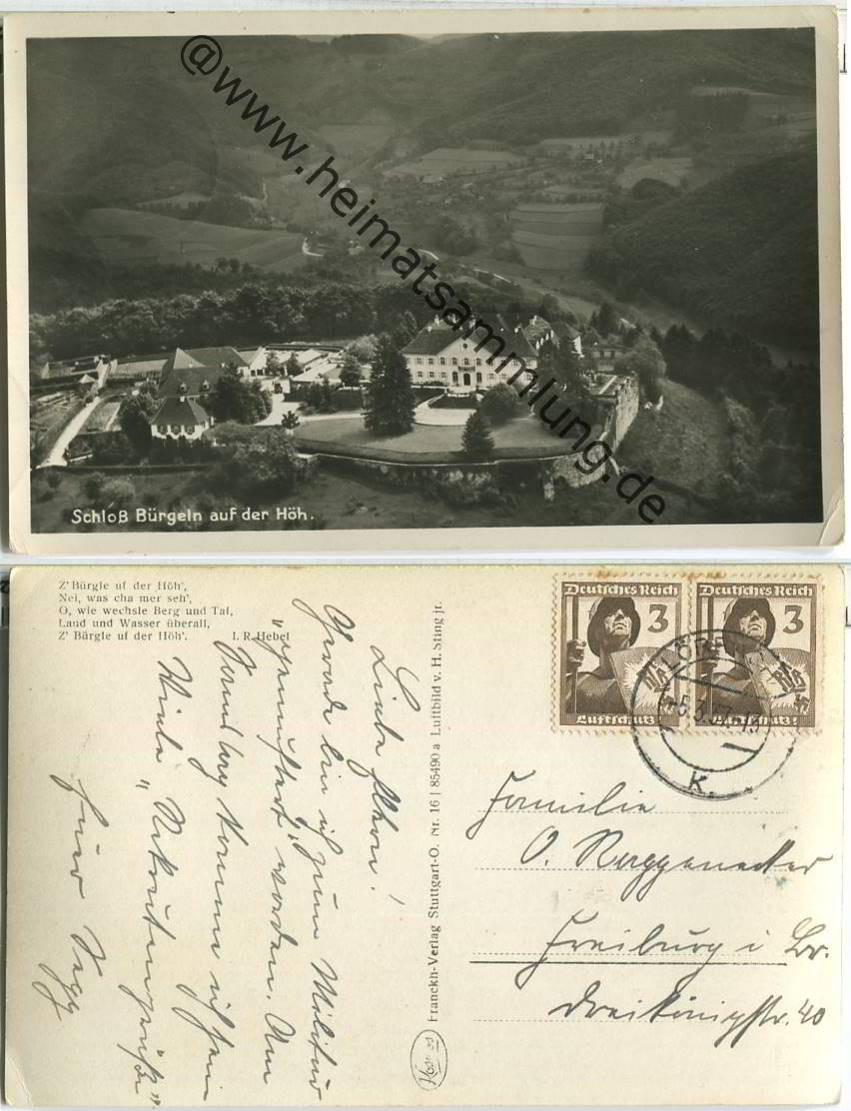 @www.heimatsammlung.de
Schloß Bürgeln auf der Höh.
Z' Bürgle uf der Höh',
Nei, was cha mer seh',
O, wie wechsle Berg und Tal,
Land und Wasser überall,
Z' Bürgle uf der Höh'. I. R. Hebel
Liebe Eltern!
Gerade bin ich zum Militär
"gemustert" worden. Am
Samstag komme ich heim
Viele "Rekrutengrüße".
Euer Sepp
Franckh-Verlag Stuttgart-O. Nr. 16 | 85490 a Luftbild v. H. Sting jr.
Deutsches Reich
3
Luftschutz!
Deutsches Reich
3
Luftschutz!
Familie
O. Ruggenecker
Freiburg i Br.
Dreikönigstr. 40